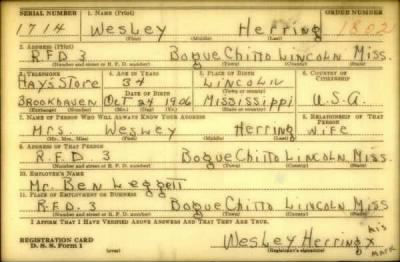 SERIAL NUMBER 1. NAME (Print) ORDER NUMBER
1714 Wesley Herring
(First) (Middle) (Last)
2. ADDRESS (Print)
R.F.D 3 Bogue Chitto Lincoln Miss.
(Number and street or R. F. D. number) (Town) (County) (State)
3. TELEPHONE 4. AGE IN YEARS 5. PLACE OF BIRTH 6. COUNTRY OF CITIZENSHIP
Hays Store 34 Lincoln
DATE OF BIRTH (Town or county)
Brookhaven Oct 24 1906 Mississippi U.S.A.
(Exchange) (Number) (Mo.) (Day) (Yr.) (State or country)
7. NAME OF PERSON WHO WILL ALWAYS KNOW YOUR ADDRESS 8. RELATIONSHIP OF THAT PERSON
Mrs. Wesley Herring Wife
(Mr., Mrs., Miss) (First) (Middle) (Last)
9. ADDRESS OF THAT PERSON
R.F.D 3 Bogue Chitto Lincoln Miss.
(Number and street or R. F. D. number) (Town) (County) (State)
10. EMPLOYER'S NAME
Mr. Ben Leggett
11. PLACE OF EMPLOYMENT OR BUSINESS
R.F.D. 3 Bogue Chitto Lincoln Miss
(Number and street or R. F. D. number) (Town) (County) (State)
I AFFIRM THAT I HAVE VERIFIED ABOVE ANSWERS AND THAT THEY ARE TRUE.
REGISTRATION CARD
D. S. S. Form 1 (over)
Wesley Herring x his mark
(Registrant's signature)